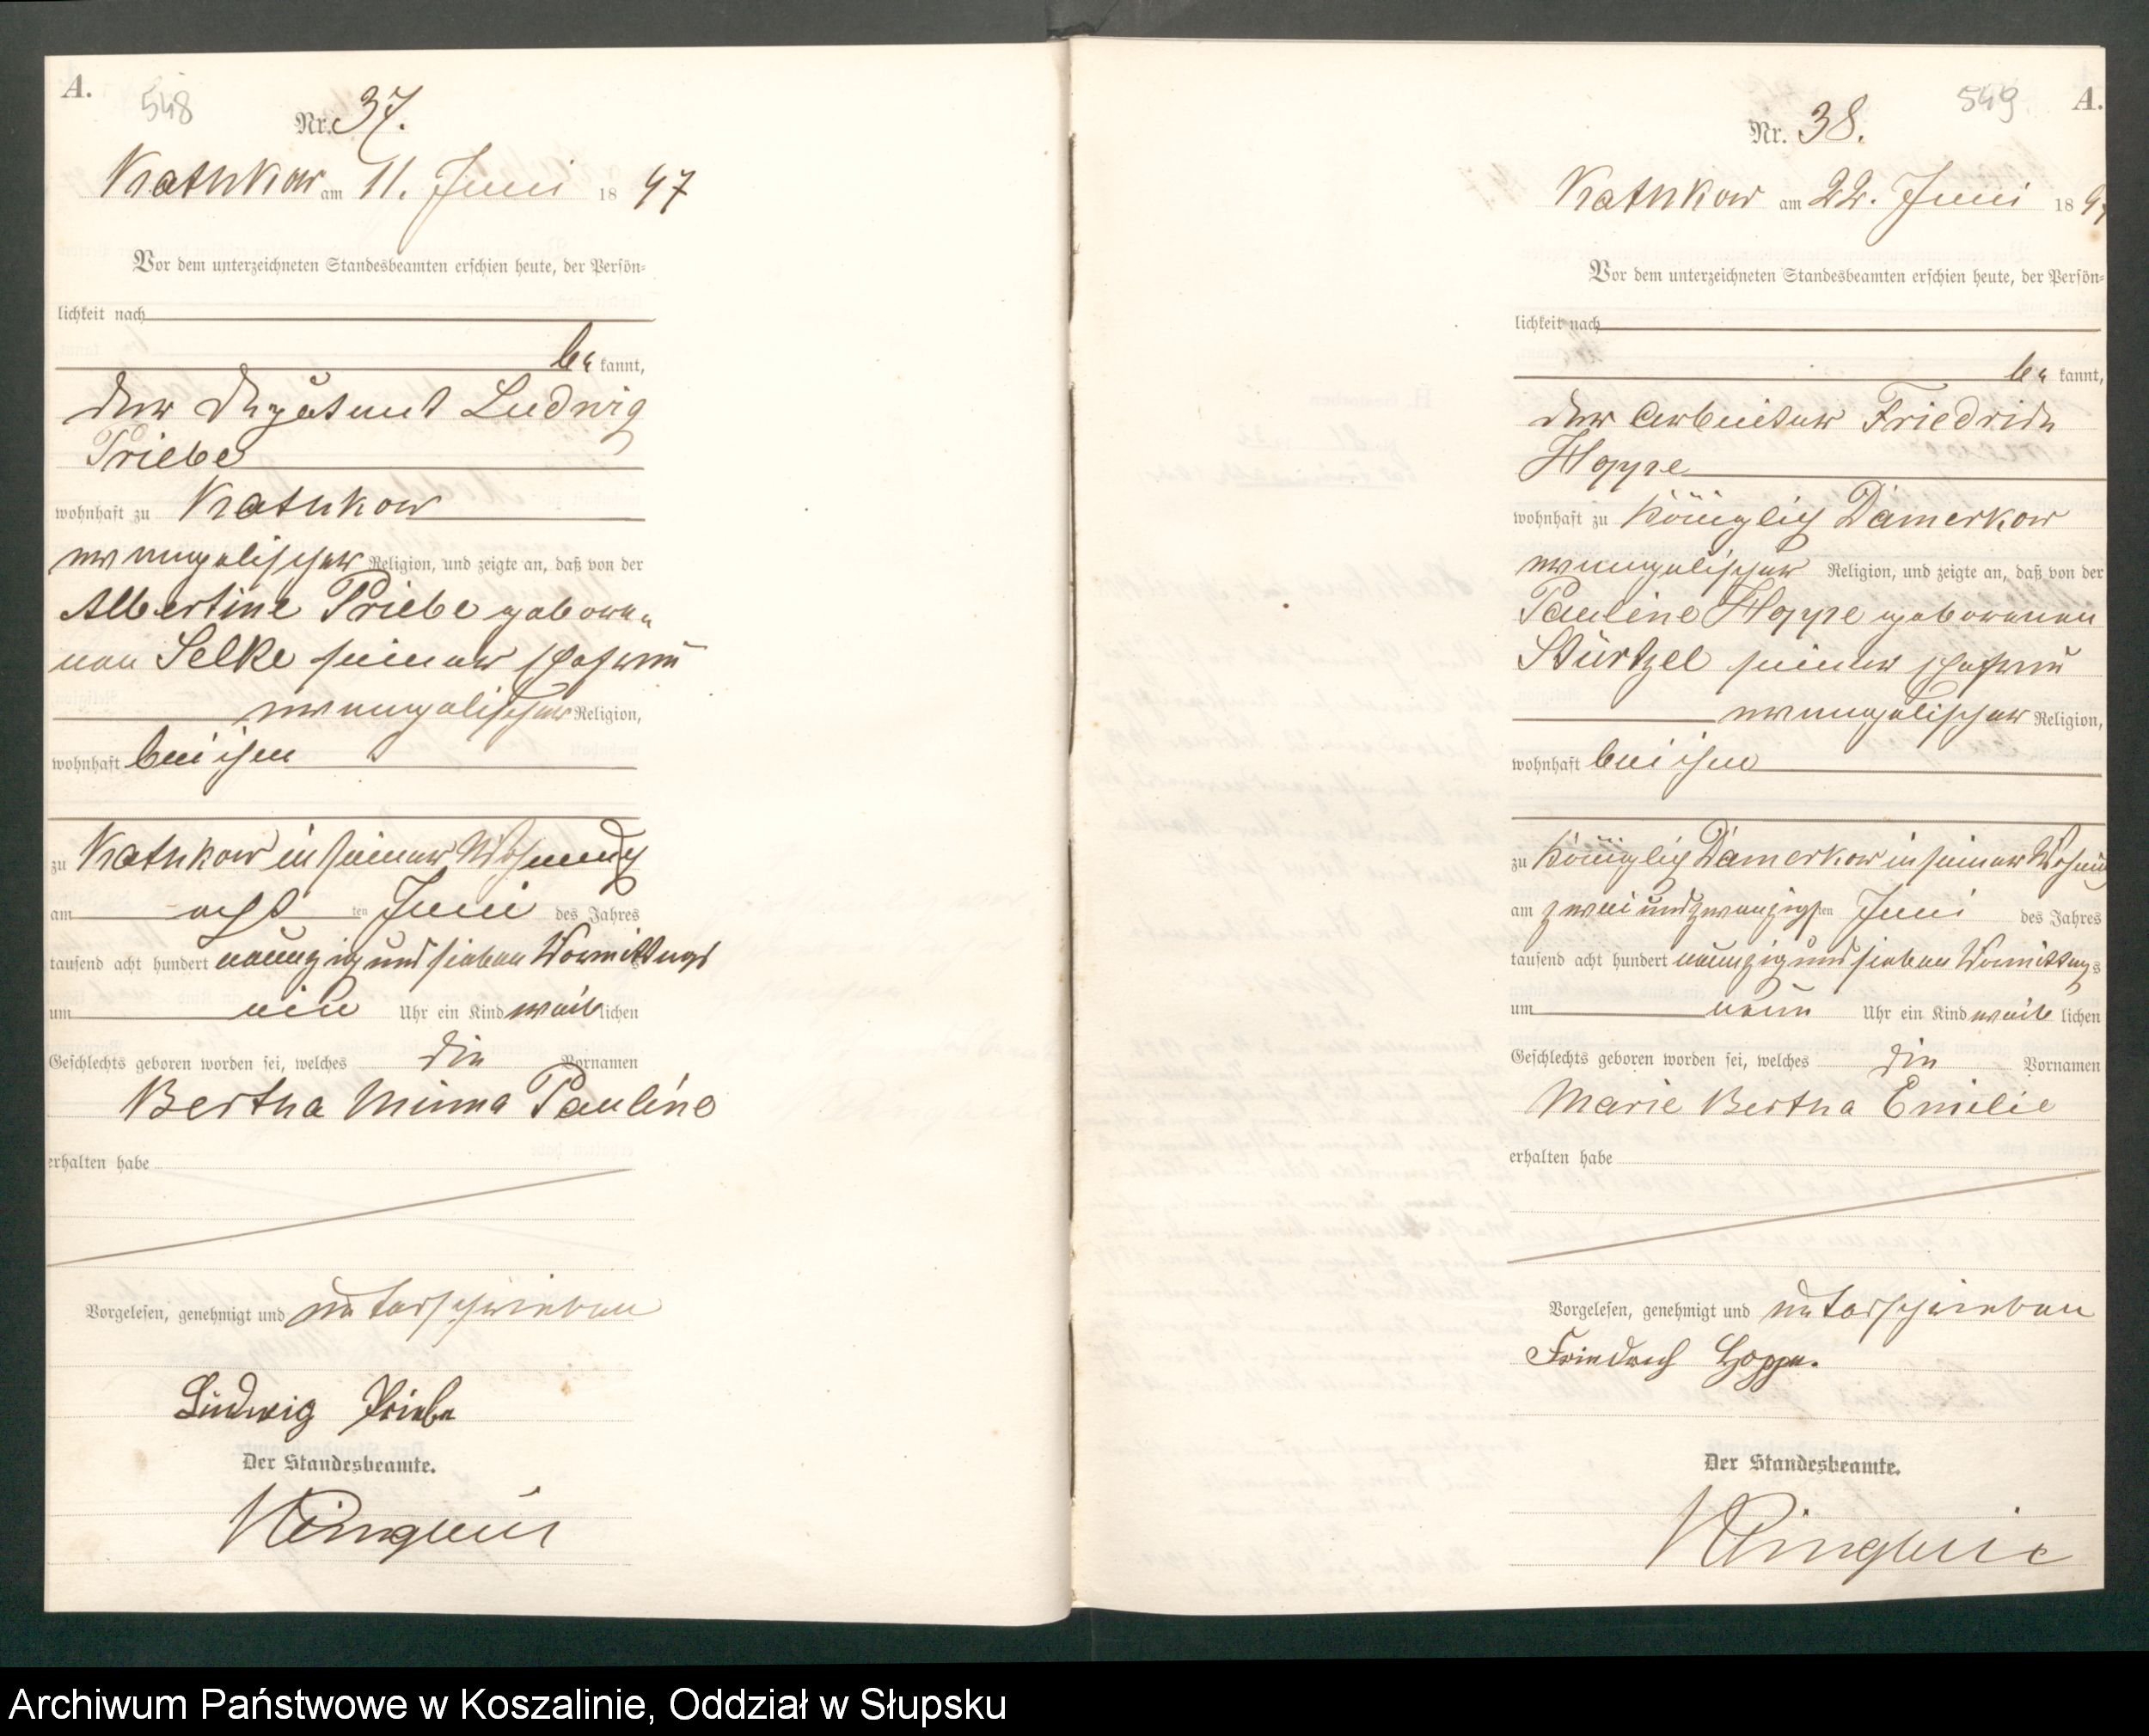 A.
548
Nr. 37.
Kathkow am 11. Juni 1897
Vor dem unterzeichneten Standesbeamten erschien heute, der Persön-
lichkeit nach
be kannt,
der Ludwig
Priebe
wohnhaft zu Kathkow
evangelischer Religion, und zeigte an, daß von der
Albertine Priebe gebore-
nen Selke seiner Ehefrau
evangelischer Religion,
wohnhaft bei ihm
zu Kathkow in seiner Wohnung
am acht ten Juni des Jahres
tausend acht hundert neunzig und sieben Vormittags
um ein Uhr ein Kind weib lichen
Geschlechts geboren worden sei, welches die Vornamen
Bertha Minna Pauline
erhalten habe
Vorgelesen, genehmigt und unterschrieben
Ludwig Priebe
Der Standesbeamte.
549
A.
Nr. 38.
Kathkow am 22. Juni 1897
Vor dem unterzeichneten Standesbeamten erschien heute, der Persön-
lichkeit nach
be kannt,
der Arbeiter Friedrich
Hoppe
wohnhaft zu Königlich Damerkow
evangelischer Religion, und zeigte an, daß von der
Pauline Hoppe geborenen
Stürtzel seiner Ehefrau
evangelischer Religion,
wohnhaft bei ihm
zu Königlich Damerkow in seiner Wohnung
am zwei und zwanzigsten Juni des Jahres
tausend acht hundert neunzig und sieben Vormittags
um neun Uhr ein Kind weib lichen
Geschlechts geboren worden sei, welches die Vornamen
Marie Bertha Emilie
erhalten habe
Vorgelesen, genehmigt und unterschrieben
Friedrich Hoppe.
Der Standesbeamte.
Archiwum Państwowe w Koszalinie, Oddział w Słupsku